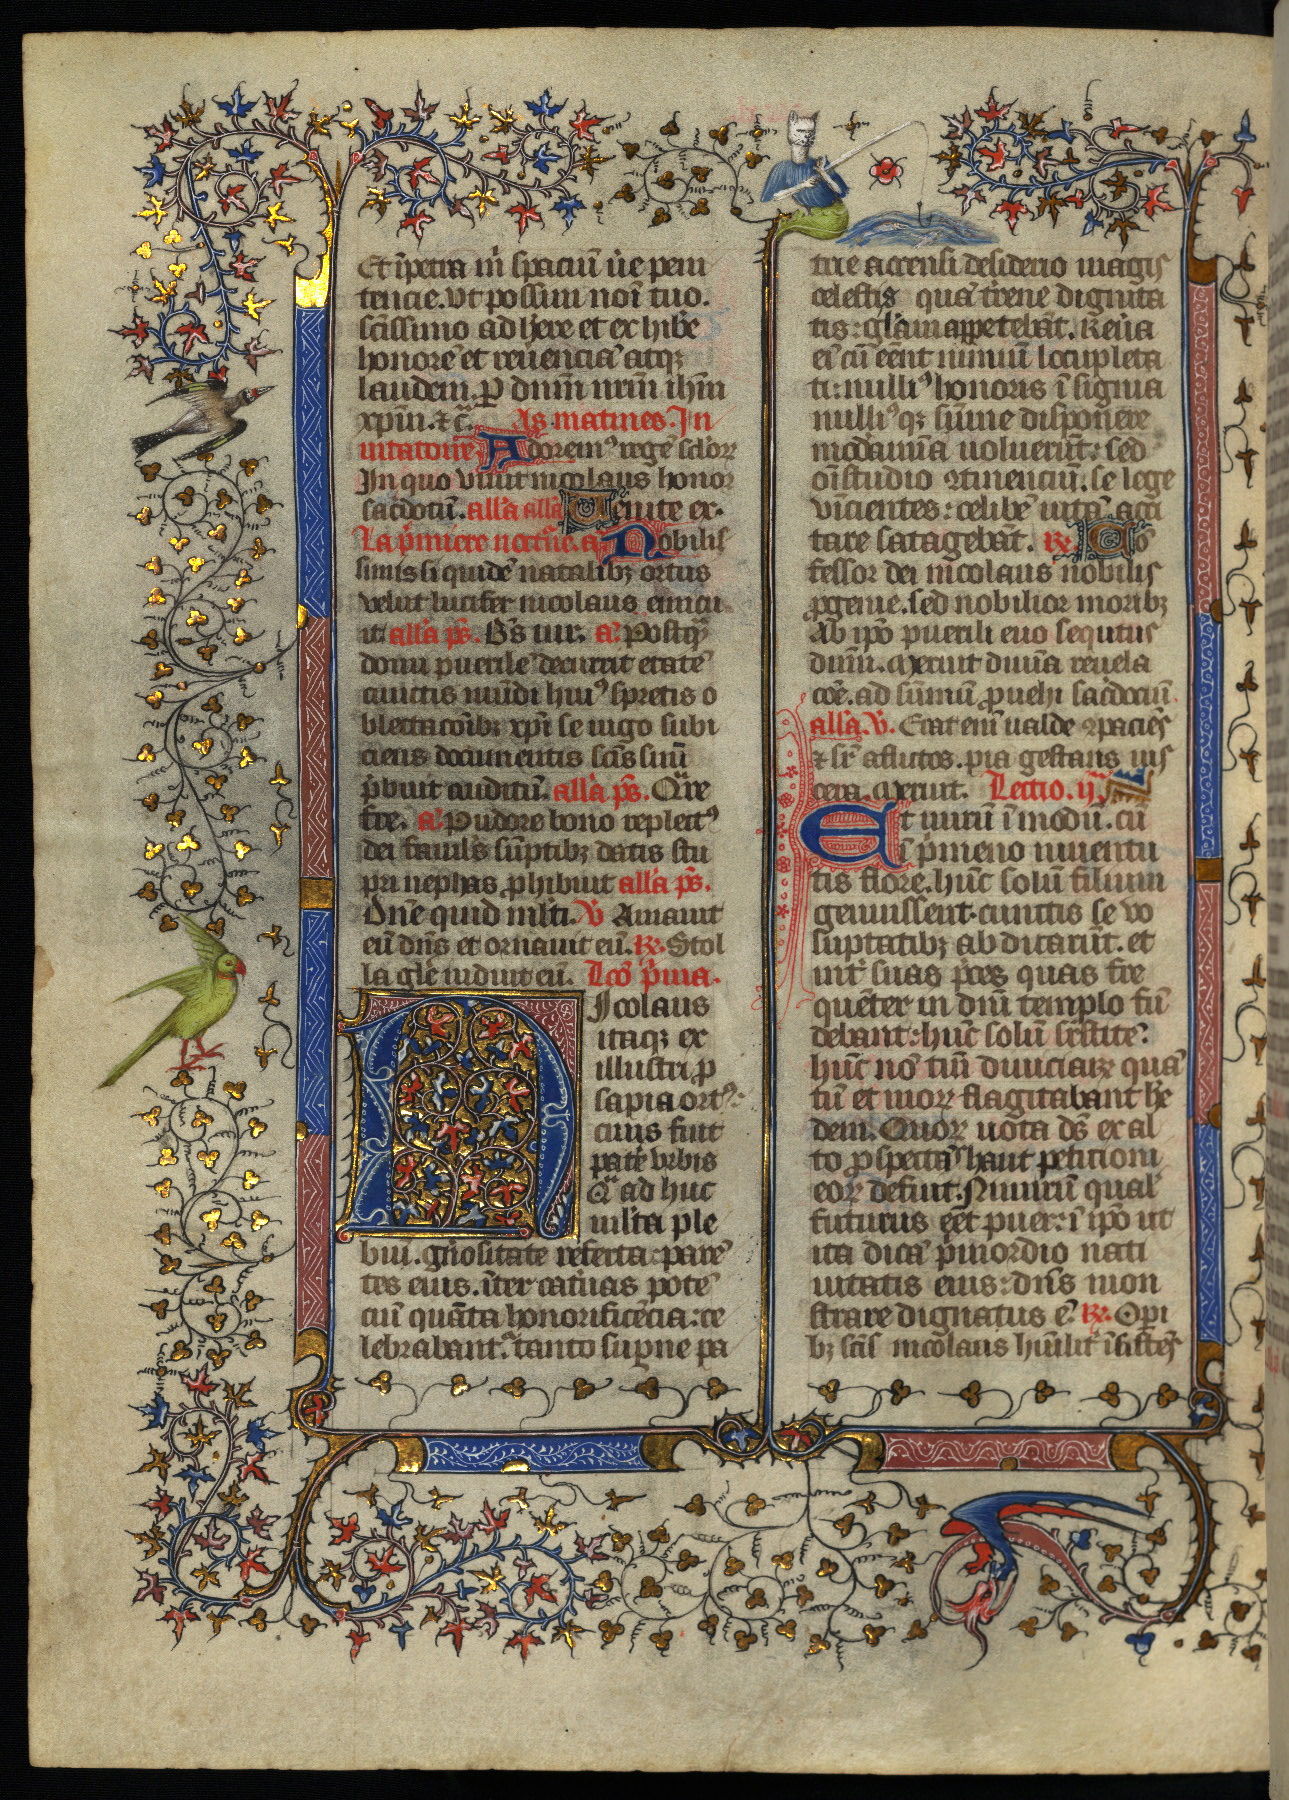 Et īpetra m̄ spaciū ūe peni
tencie. Ut possim noī tuo.
sc̄issimo adh̄ere et exhibe
honorē et reūenciā atqꝫ
laudem. P̱ dn̄m nr̄m ih̄m
xp̄m. ⁊c̄. As matines. In
uitatoire Adoremꝰ regē sc̄loꝝ
In quo viuit nicolaus honor
sac̄dotū. all'a all'a Uenite ex.
La p̄miere noct'ne. a. Nobilis
simis siquidē natalibꝫ ortus
velut lucifer nicolaus emicu
it all'a ps̄. Bs̄ uir. a. Postqꝫ
domi puerilē decurrit etatē
cunctis mūdi huiꝰ spretis o
blectac̄oibꝫ xp̄i se iugo subi
ciens documentis sc̄is suū
p̄buit auditū. all'a ps̄. Qr̄e
fre. a. Pudore bono repletꝰ
dei famul's sūptibꝫ datis stu
pri nephas ꝓhibuit all'a ps̄.
Dn̄e quid ml'ti. V Amauit
eū dn̄s et ornauit eū. R̄. Stol
la gl'e induit eū. Lc̄o p̄ma.
Nicolaus
itaqꝫ ex
illustri ꝓ
sapia ortꝰ:
cuius fuit
pat'e urbis
Q̄ ad huc
ml'ta ple
bui. gn̄ositate referta: paren̄
tes eius. īter cat'uas potē
ciū quāta honorificēcia: ce
lebrabant. tanto sup̱ne pa
trie accensi desiderio magis
celestis quā t'rene dignita
tis: gl'am appetebāt. Reūa
ei cū eēnt nimiū locupleta
ti: nulliꝰ honoris īsignia
nulliꝰqꝫ sūme disponere
modamīa uoluerūt: sed
oī studio ꝯtinenciū. se lege
vīcientes: celibē uitā acti
tare satagebāt. R̄. Cō
fessor dei nicolaus nobilis
ꝓgenie. sed nobilior moribꝫ
Ab ip̄o puerili euo sequtus
dn̄m. Meruit diuīa reuela
cōe. ad sūmū ꝓuehi sac̄dociū.
all'a. V. Erat enī ualde ꝯpaciēs
⁊ sr̄ aflictos. pia gestans uis
cera. Meruit. Lectio. ij.
Et mirū ī modū. cū
ī p̄meno iuuentu
tis flore. hūc solū filium
genuissent. cunctis se vo
luptatibꝫ abdicarūt. et
int' suas p̄ces quas fre
quēter in dn̄i templo fū
debant: hūc solū sr̄stite:
hūc nō tm̄ diuiciaꝝ quā
tū et moꝝ flagitabant he
dem. Quoꝝ uota ds̄ ex al
to ꝓspectās haut peticioni
eoꝝ defuit. Nimirū qual'
futurus eēt puer: ī ip̄o ut
ita dicā p̄mordio nati
uitatis eius: dn̄s mon
strare dignatus ē. R̄. Opi
bꝫ sc̄is nicolaus hūilit' īsistēs